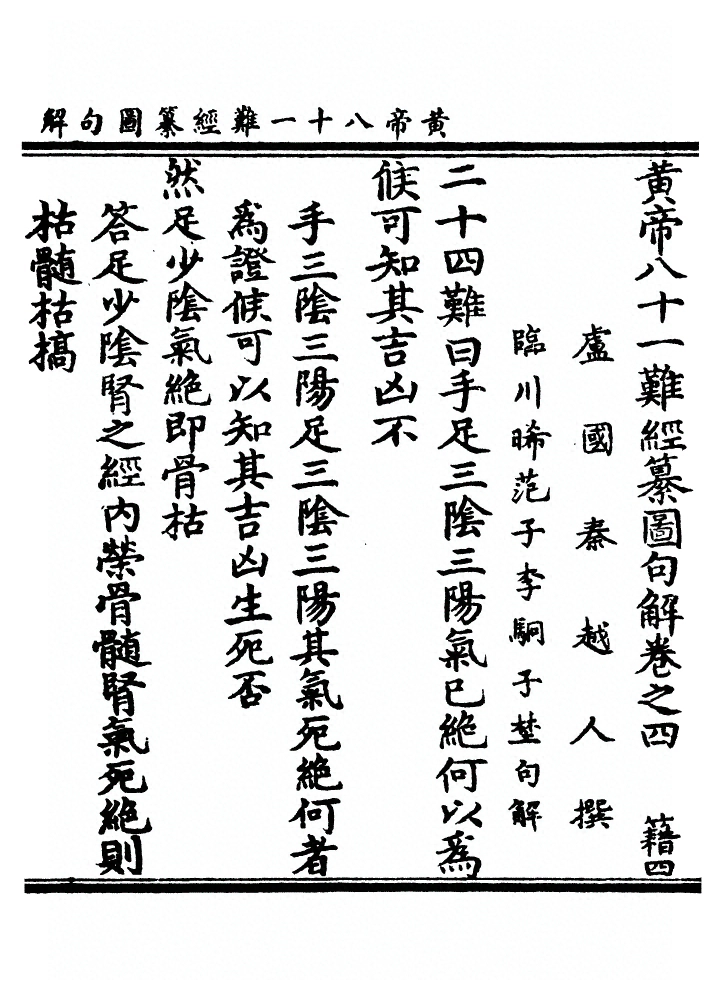 黄帝八十一難經纂圖句解
黄帝八十一難經纂圖句解卷之四　籍四
盧國秦越人撰
臨川晞范子李駉子埜句解
二十四難曰手足三陰三陽氣已絶何以爲
候可知其吉凶不
手三陰三陽足三陰三陽其氣死絶何者
爲證候可以知其吉凶生死否
然足少陰氣絶即骨枯
答足少陰腎之經内榮骨髓腎氣死絶則
枯髓枯搞